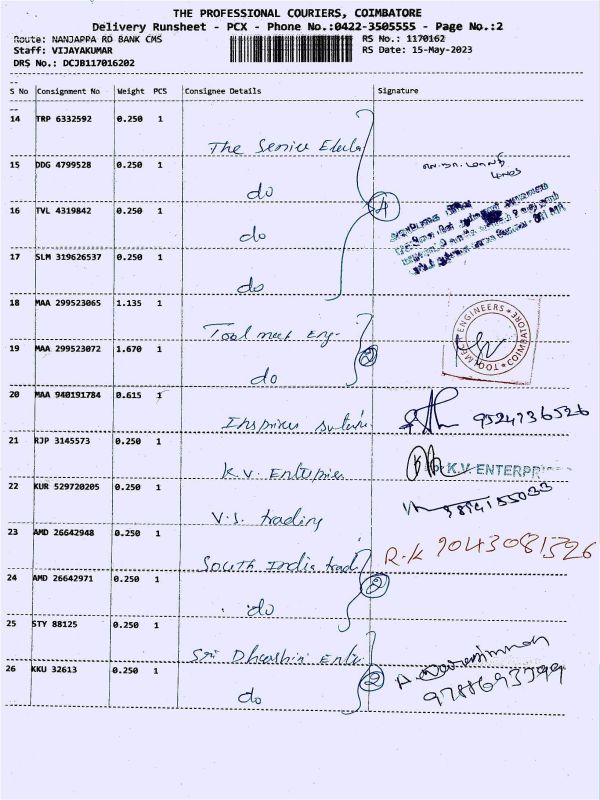 THE PROFESSIONAL COURIERS, COIMBATORE
Delivery Runsheet - PCX - Phone No.:0422-3505555 - Page No.:2
Route: NANJAPPA RD BANK CMS RS No.: 1170162
Staff: VIJAYAKUMAR RS Date: 15-May-2023
DRS No.: DCJB117016202
S No Consignment No Weight PCS Consignee Details Signature
14 TRP 6332592 0.250 1
The Senior
15 DDG 4799528 0.250 1
do
16 TVL 4319842 0.250 1
do
17 SLM 319626537 0.250 1
do
18 MAA 299523065 1.135 1
Tool meet Eng-
ENGINEERS COIMBATORE TOOL
19 MAA 299523072 1.670 1
do 2
20 MAA 940191784 0.615 1
9524736526
21 RJP 3145573 0.250 1
K.V. Enterprises K.V. ENTERPR
22 KUR 529720205 0.250 1
V.S. trading
23 AMD 26642948 0.250 1
South India tradi R.K
24 AMD 26642971 0.250 1
do 2
25 STY 88125 0.250 1
Sri Dharshini Enter
26 KKU 32613 0.250 1
do 2